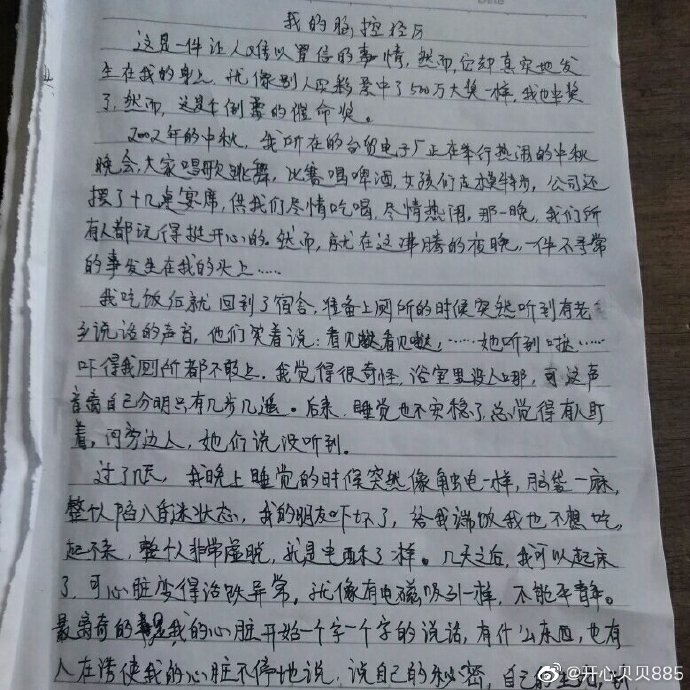 我的脑控经历
这是一件让人难以置信的事情，然而，它却真实地发
生在我的身上，就像别人买彩票中了500万大奖一样，我也中奖
了，然而，这是个倒霉的催命奖。
2002年的中秋，我所在的台资电子厂正在举行热闹的中秋
晚会，大家唱歌跳舞，比赛喝啤酒，女孩们走模特步，公司还
摆了十几桌宴席，供我们尽情吃喝，尽情热闹。那一晚，我们所
有人都玩得挺开心的。然而，就在这沸腾的夜晚，一件不寻常
的事发生在我的头上……
我吃饭后就回到了宿舍，准备上厕所的时候突然听到有老
乡说话的声音，他们笑着说：看见啦看见啦，……她听到啦……
吓得我厕所都不敢上。我觉得很奇怪，浴室里没人哪，可这声
音离自己分明只有几步几遥。后来，睡觉也不安稳了，总觉得有人盯
着，问旁边人，她们说没听到。
过了几天，我晚上睡觉的时候突然像触电一样，脑袋一麻，
整个人陷入昏迷状态，我的朋友吓坏了，给我端饭我也不想吃，
起不来，整个人非常虚脱，就是电麻了一样。几天之后，我可以起床
了，可心脏变得活跃异常。就像有电磁吸引一样，不能平静。
最离奇的是我的心脏开始一个字一个字的说话，有什么东西，也有
人在诱使我的心脏不停地说，说自己的秘密，自己
@开心贝贝885